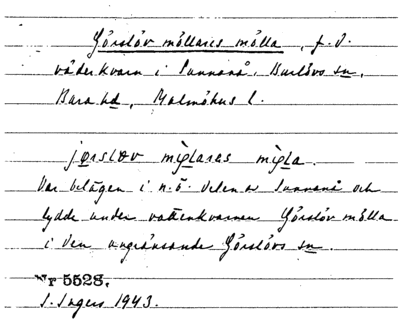 Görslöv möllares mölla, f.d.
väderkvarn i Sunnanå, Burlövs sn,
Bara hd, Malmöhus l.
jørsløv mỳglaras mỳgla.
Var belägen i n.ö. delen av Sunnanå och
lydde under vattenkvarnen Görslöv mölla
i den angränsande Görslövs sn.
Nr 5528.
I. Ingers 1943.